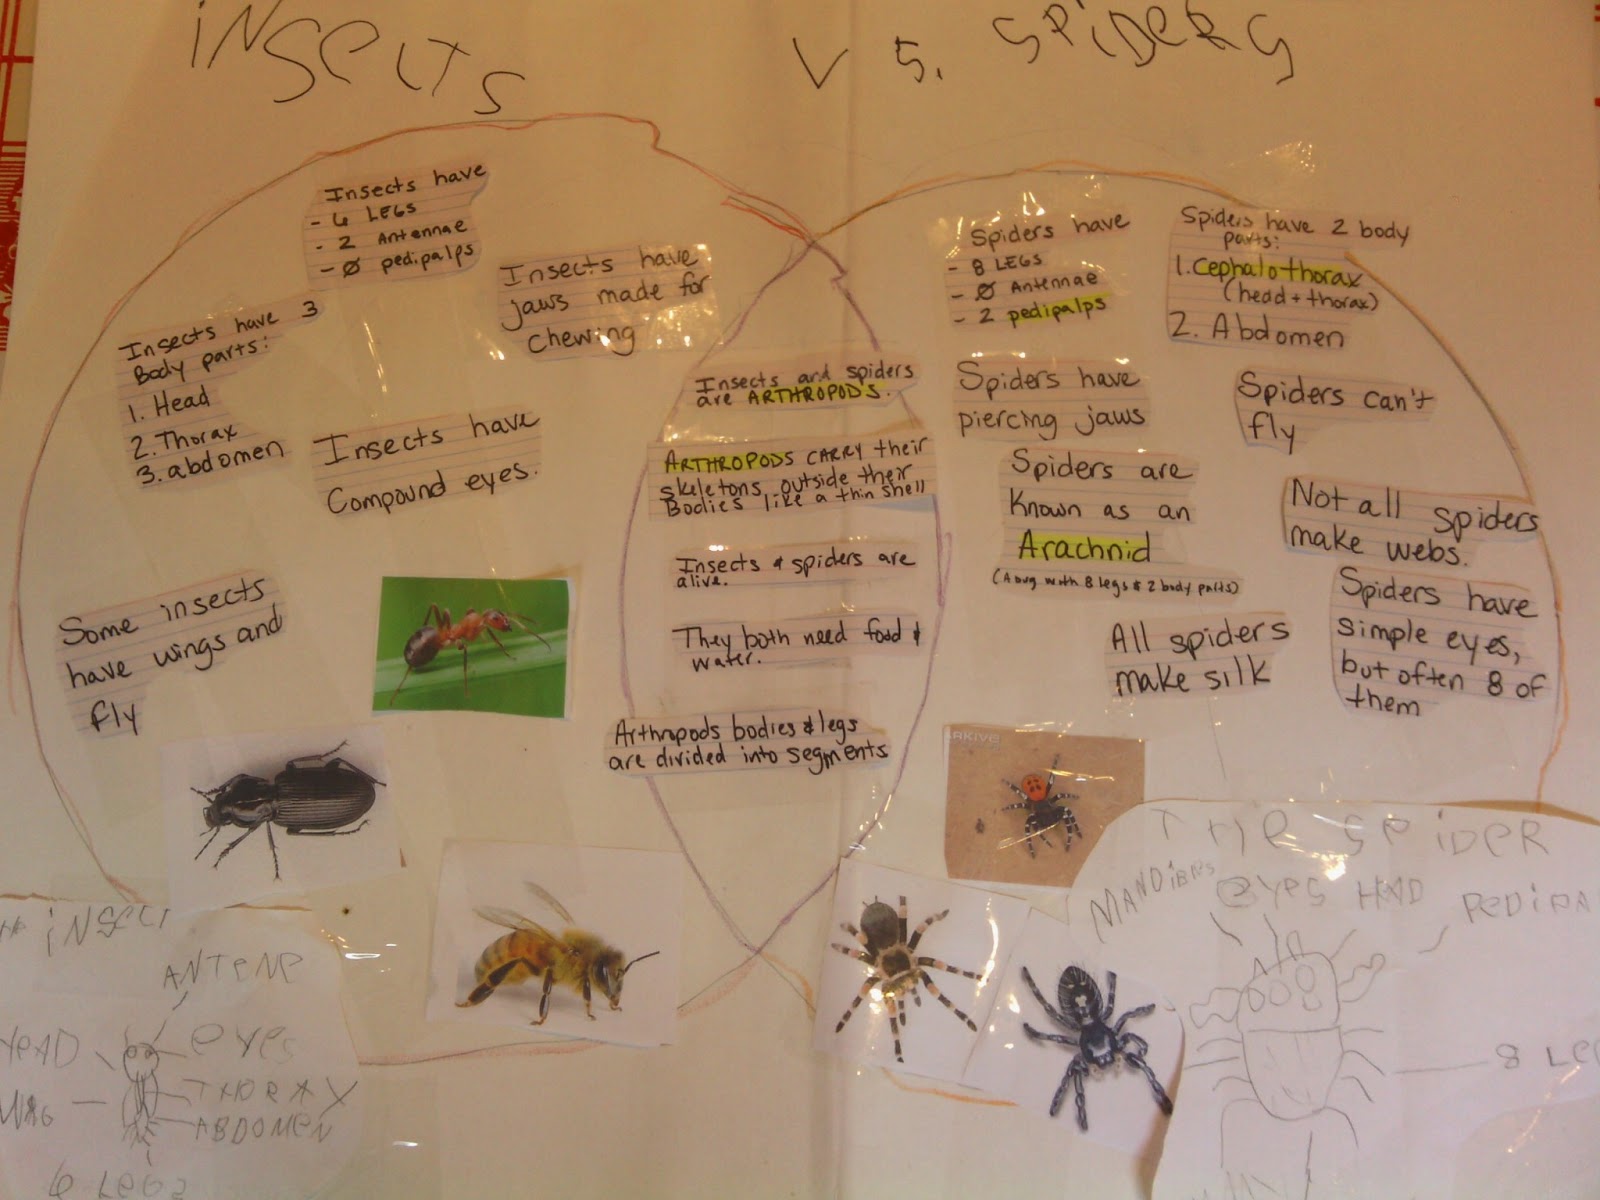 INSECTS VS. SPIDERS
Insects have
- 6 LEGS
- 2 Antennae
- Ø pedipalps
Insects have
jaws made for
chewing
Insects have 3
Body parts:
1. Head
2. Thorax
3. abdomen
Insects have
Compound eyes.
Some insects
have wings and
fly
Insects and spiders
are ARTHROPODS.
ARTHROPODS CARRY their
skeletons outside their
Bodies like a thin shell
Insects & spiders are
alive.
They both need food &
water.
Arthropods bodies & legs
are divided into segments
Spiders have
- 8 LEGS
- Ø Antennae
- 2 pedipalps
Spiders have 2 body
parts:
1. Cephalothorax
(head + thorax)
2. Abdomen
Spiders have
piercing jaws
Spiders can't
fly
Spiders are
Known as an
Arachnid
(A bug with 8 legs & 2 body parts)
Not all spiders
make webs.
All spiders
make silk
Spiders have
simple eyes,
but often 8 of
them
ARKive
INSECT
ANTENE
HEAD
EYES
THORAX
ABDOMEN
6 LEGS
THE SPIDER
EYES HEAD PEDIPA
8 LEG